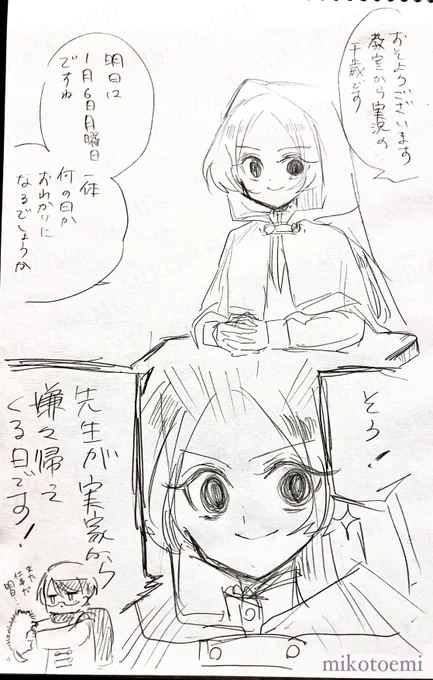 おそようございます
教室から実況の
千歳です
明日は
1月6日月曜日
ですね
一体
何の日か
おわかりに
なるでしょうか
そう!
先生が実家から
嫌々帰って
くる日です!
mikotoemi